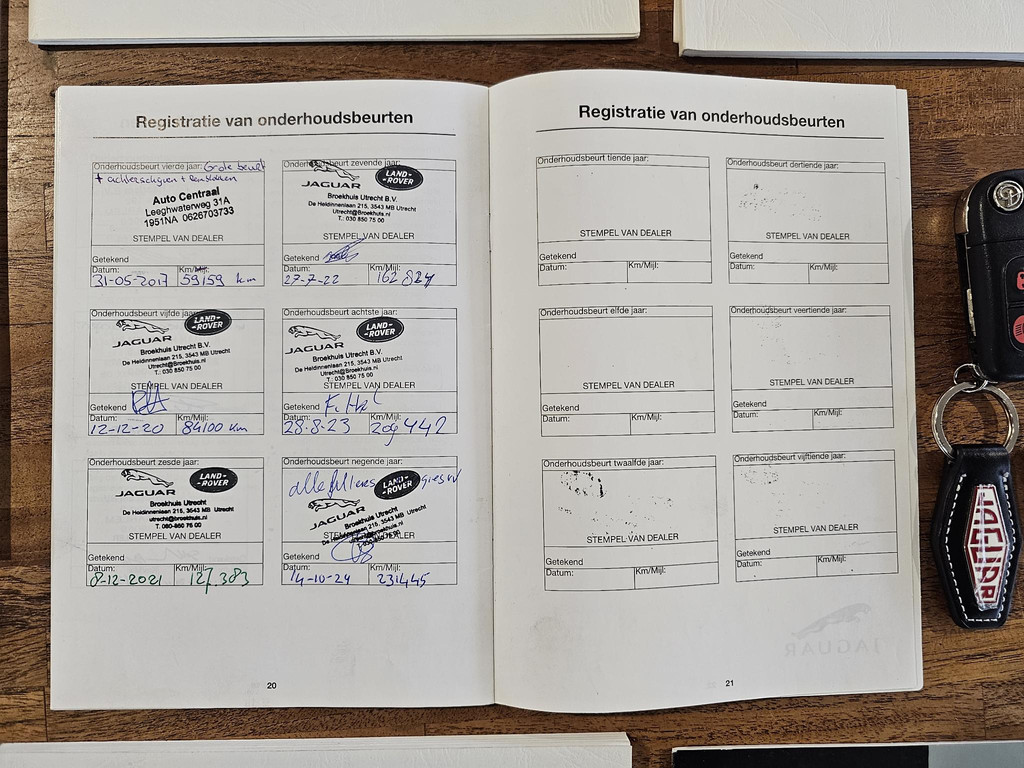 Registratie van onderhoudsbeurten
Onderhoudsbeurt vierde jaar: Grote beurt
+ achterschijven +
Auto Centraal
Leeghwaterweg 31A
1951NA 0626703733
STEMPEL VAN DEALER
Getekend
Datum: Km/Mijl:
31-05-2017 59159 km
Onderhoudsbeurt vijfde jaar:
JAGUAR LAND-ROVER
Broekhuis Utrecht B.V.
De Heldinnenlaan 215, 3543 MB Utrecht
Utrecht@Broekhuis.nl
T.: 030 850 75 00
STEMPEL VAN DEALER
Getekend
Datum: Km/Mijl:
12-12-20 84100 km
Onderhoudsbeurt zesde jaar:
JAGUAR LAND-ROVER
Broekhuis Utrecht
De Heldinnenlaan 215, 3543 MB Utrecht
utrecht@broekhuis.nl
STEMPEL VAN DEALER
Getekend
Datum: Km/Mijl:
8-12-2021 127,383
Onderhoudsbeurt zevende jaar:
JAGUAR LAND-ROVER
Broekhuis Utrecht B.V.
De Heldinnenlaan 215, 3543 MB Utrecht
Utrecht@Broekhuis.nl
T.: 030 850 75 00
STEMPEL VAN DEALER
Getekend
Datum: Km/Mijl:
27-7-22 162 824
Onderhoudsbeurt achtste jaar:
JAGUAR LAND-ROVER
Broekhuis Utrecht B.V.
De Heldinnenlaan 215, 3543 MB Utrecht
Utrecht@Broekhuis.nl
T.: 030 850 75 00
STEMPEL VAN DEALER
Getekend
Datum: Km/Mijl:
28-8-23 209 442
Onderhoudsbeurt negende jaar:
alle
JAGUAR LAND-ROVER
Broekhuis Utrecht
De Heldinnenlaan 215, 3543 MB Utrecht
utrecht@broekhuis.nl
STEMPEL VAN DEALER
Getekend
Datum: Km/Mijl:
14-10-24 231445
20
Registratie van onderhoudsbeurten
Onderhoudsbeurt tiende jaar:
STEMPEL VAN DEALER
Getekend
Datum: Km/Mijl:
Onderhoudsbeurt elfde jaar:
STEMPEL VAN DEALER
Getekend
Datum: Km/Mijl:
Onderhoudsbeurt twaalfde jaar:
STEMPEL VAN DEALER
Getekend
Datum: Km/Mijl:
Onderhoudsbeurt dertiende jaar:
STEMPEL VAN DEALER
Getekend
Datum: Km/Mijl:
Onderhoudsbeurt veertiende jaar:
STEMPEL VAN DEALER
Getekend
Datum: Km/Mijl:
Onderhoudsbeurt vijftiende jaar:
STEMPEL VAN DEALER
Getekend
Datum: Km/Mijl:
JAGUAR
21
JAGUAR